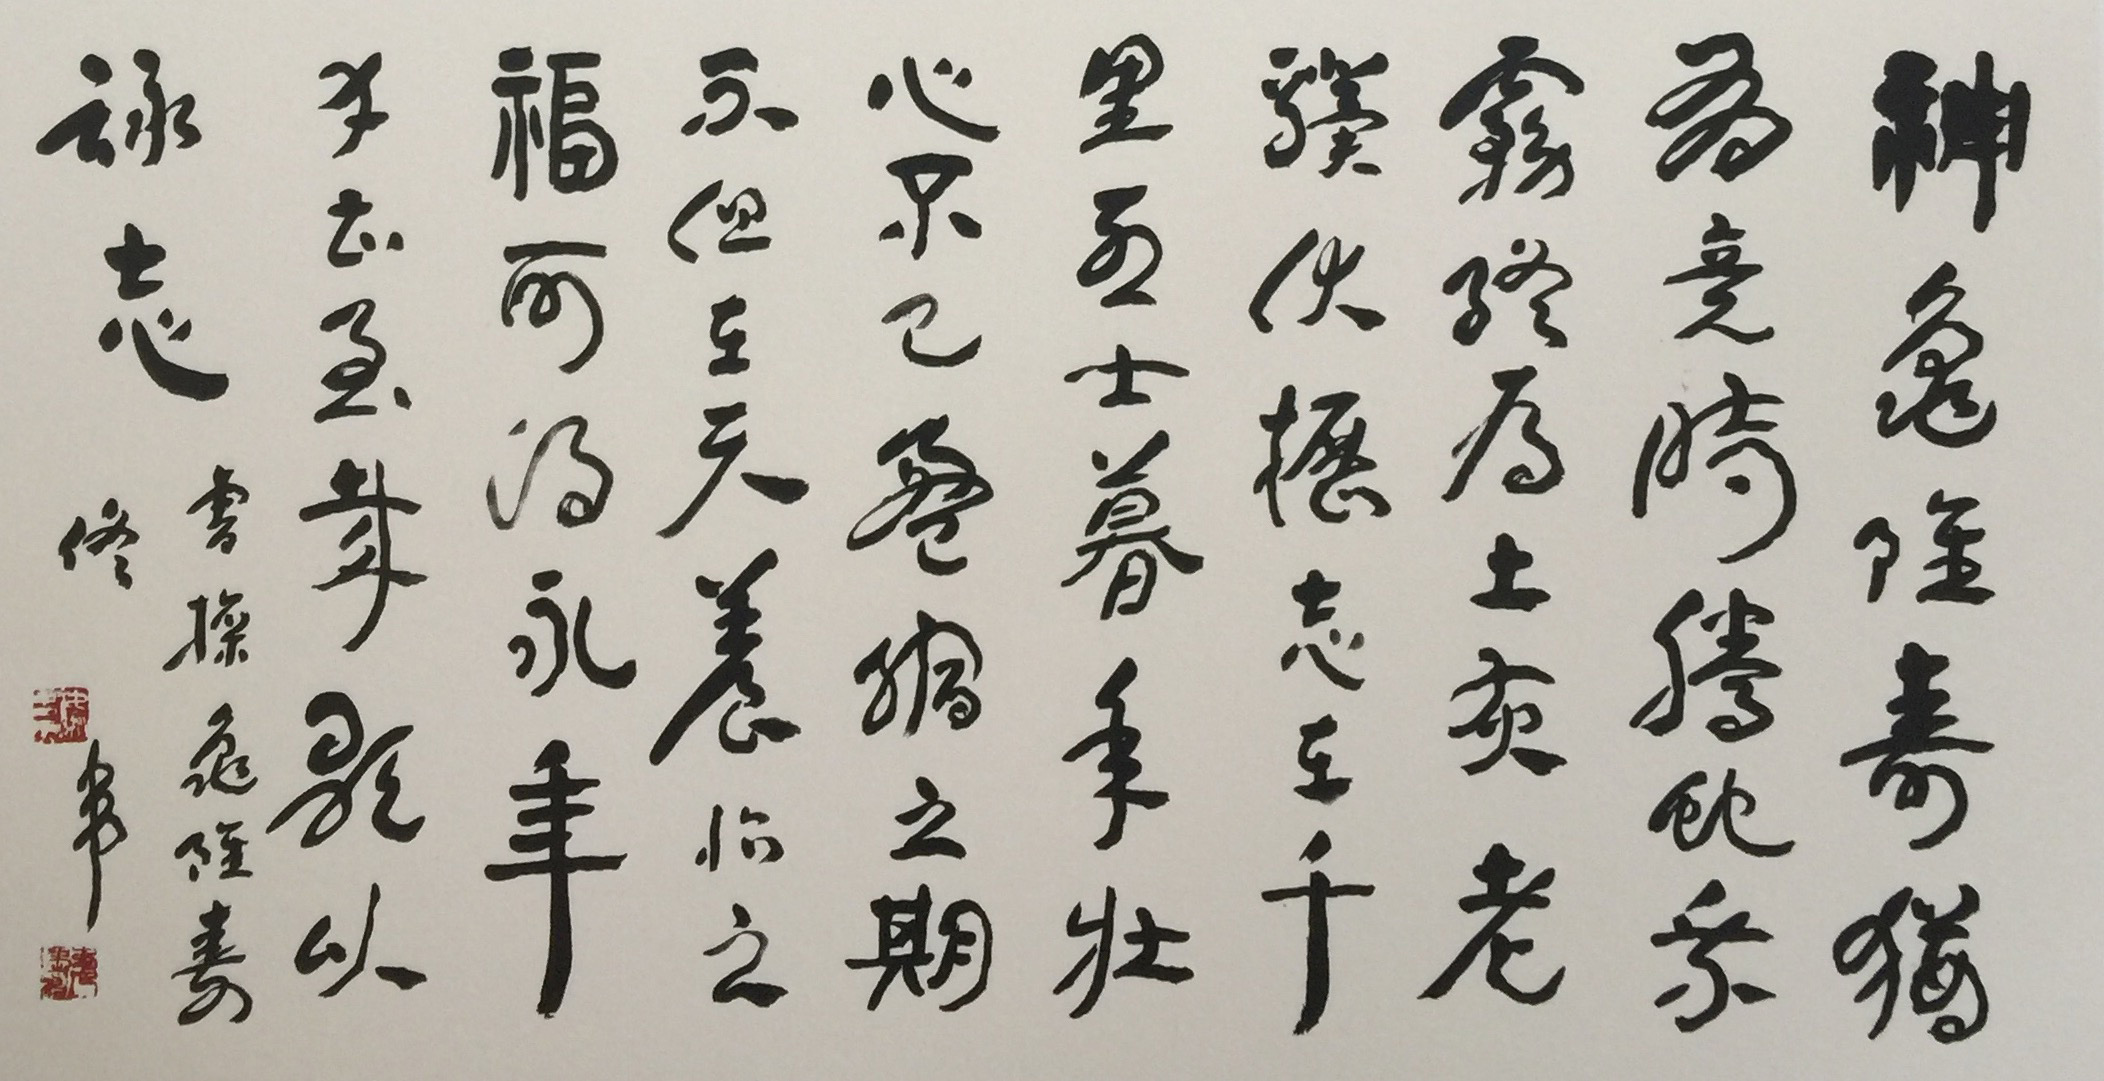 神龜雖壽猶
有竟時騰蛇乘
霧終為土灰老
驥伏櫪志在千
里烈士暮年壯
心不已盈縮之期
不但在天養怡之
福可得永年
幸甚至哉歌以
詠志
曹操龜雖壽
佟